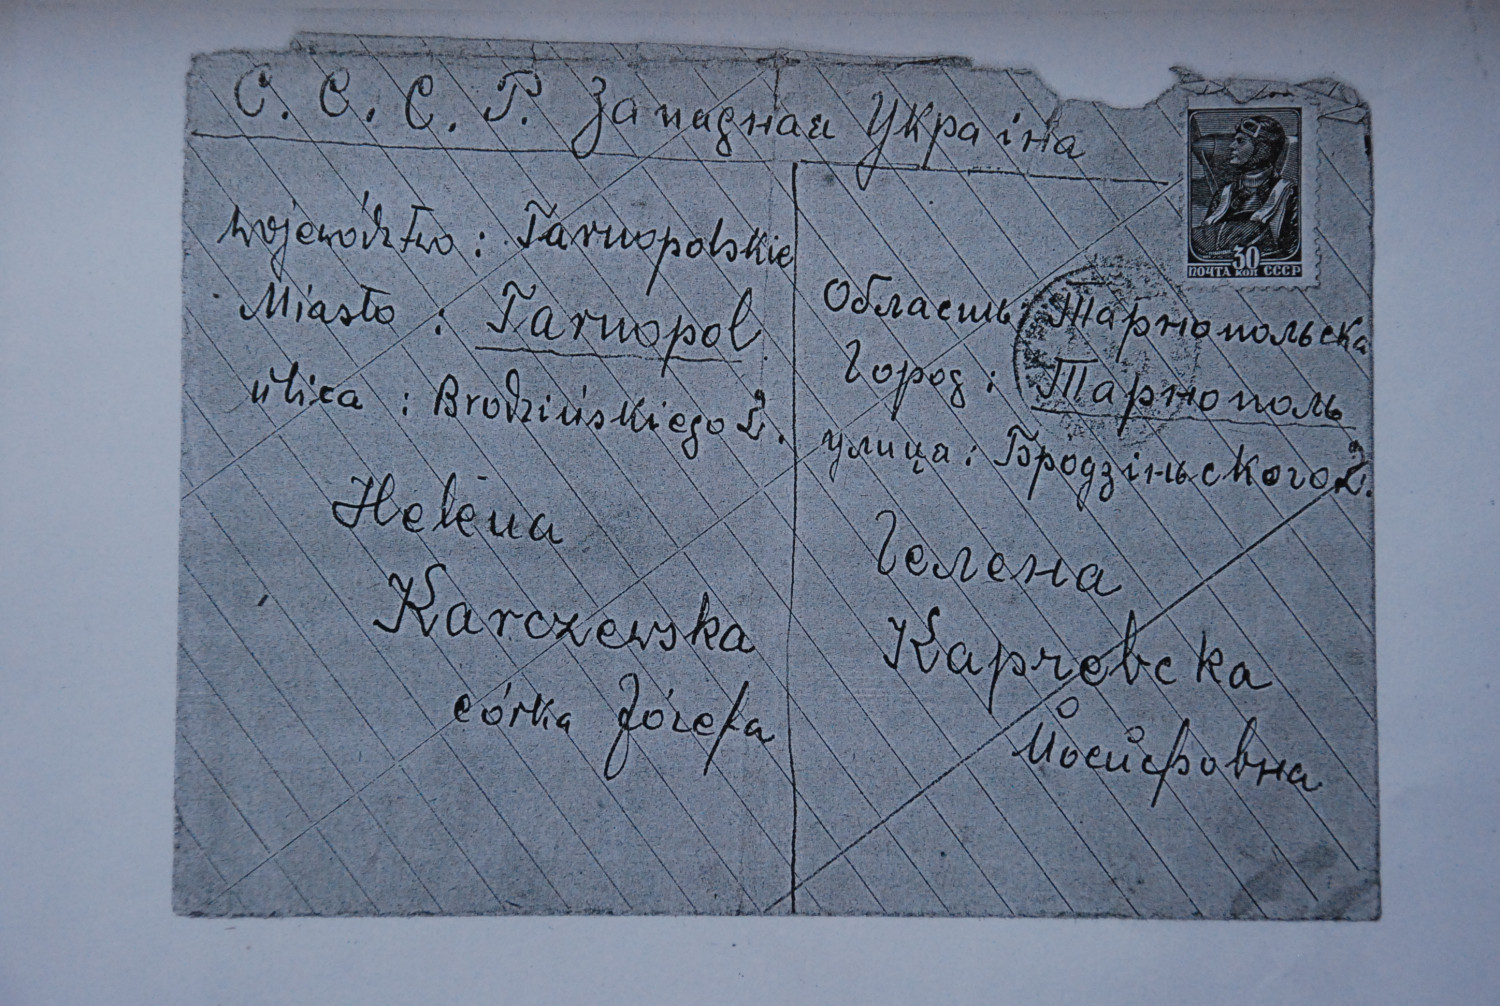 С. С. С. Р. Западная Украiна
30
ПОЧТА КОП СССР
województwo: Tarnopolskie
Miasto: Tarnopol
ulica: Brodzińskiego 2.
Helena
Karczewska
córka Józefa
Область: Тарнопольска
Город: Тарнополь
улица: Бродзiньского 2.
Гелена
Карчевска
Йосифовна